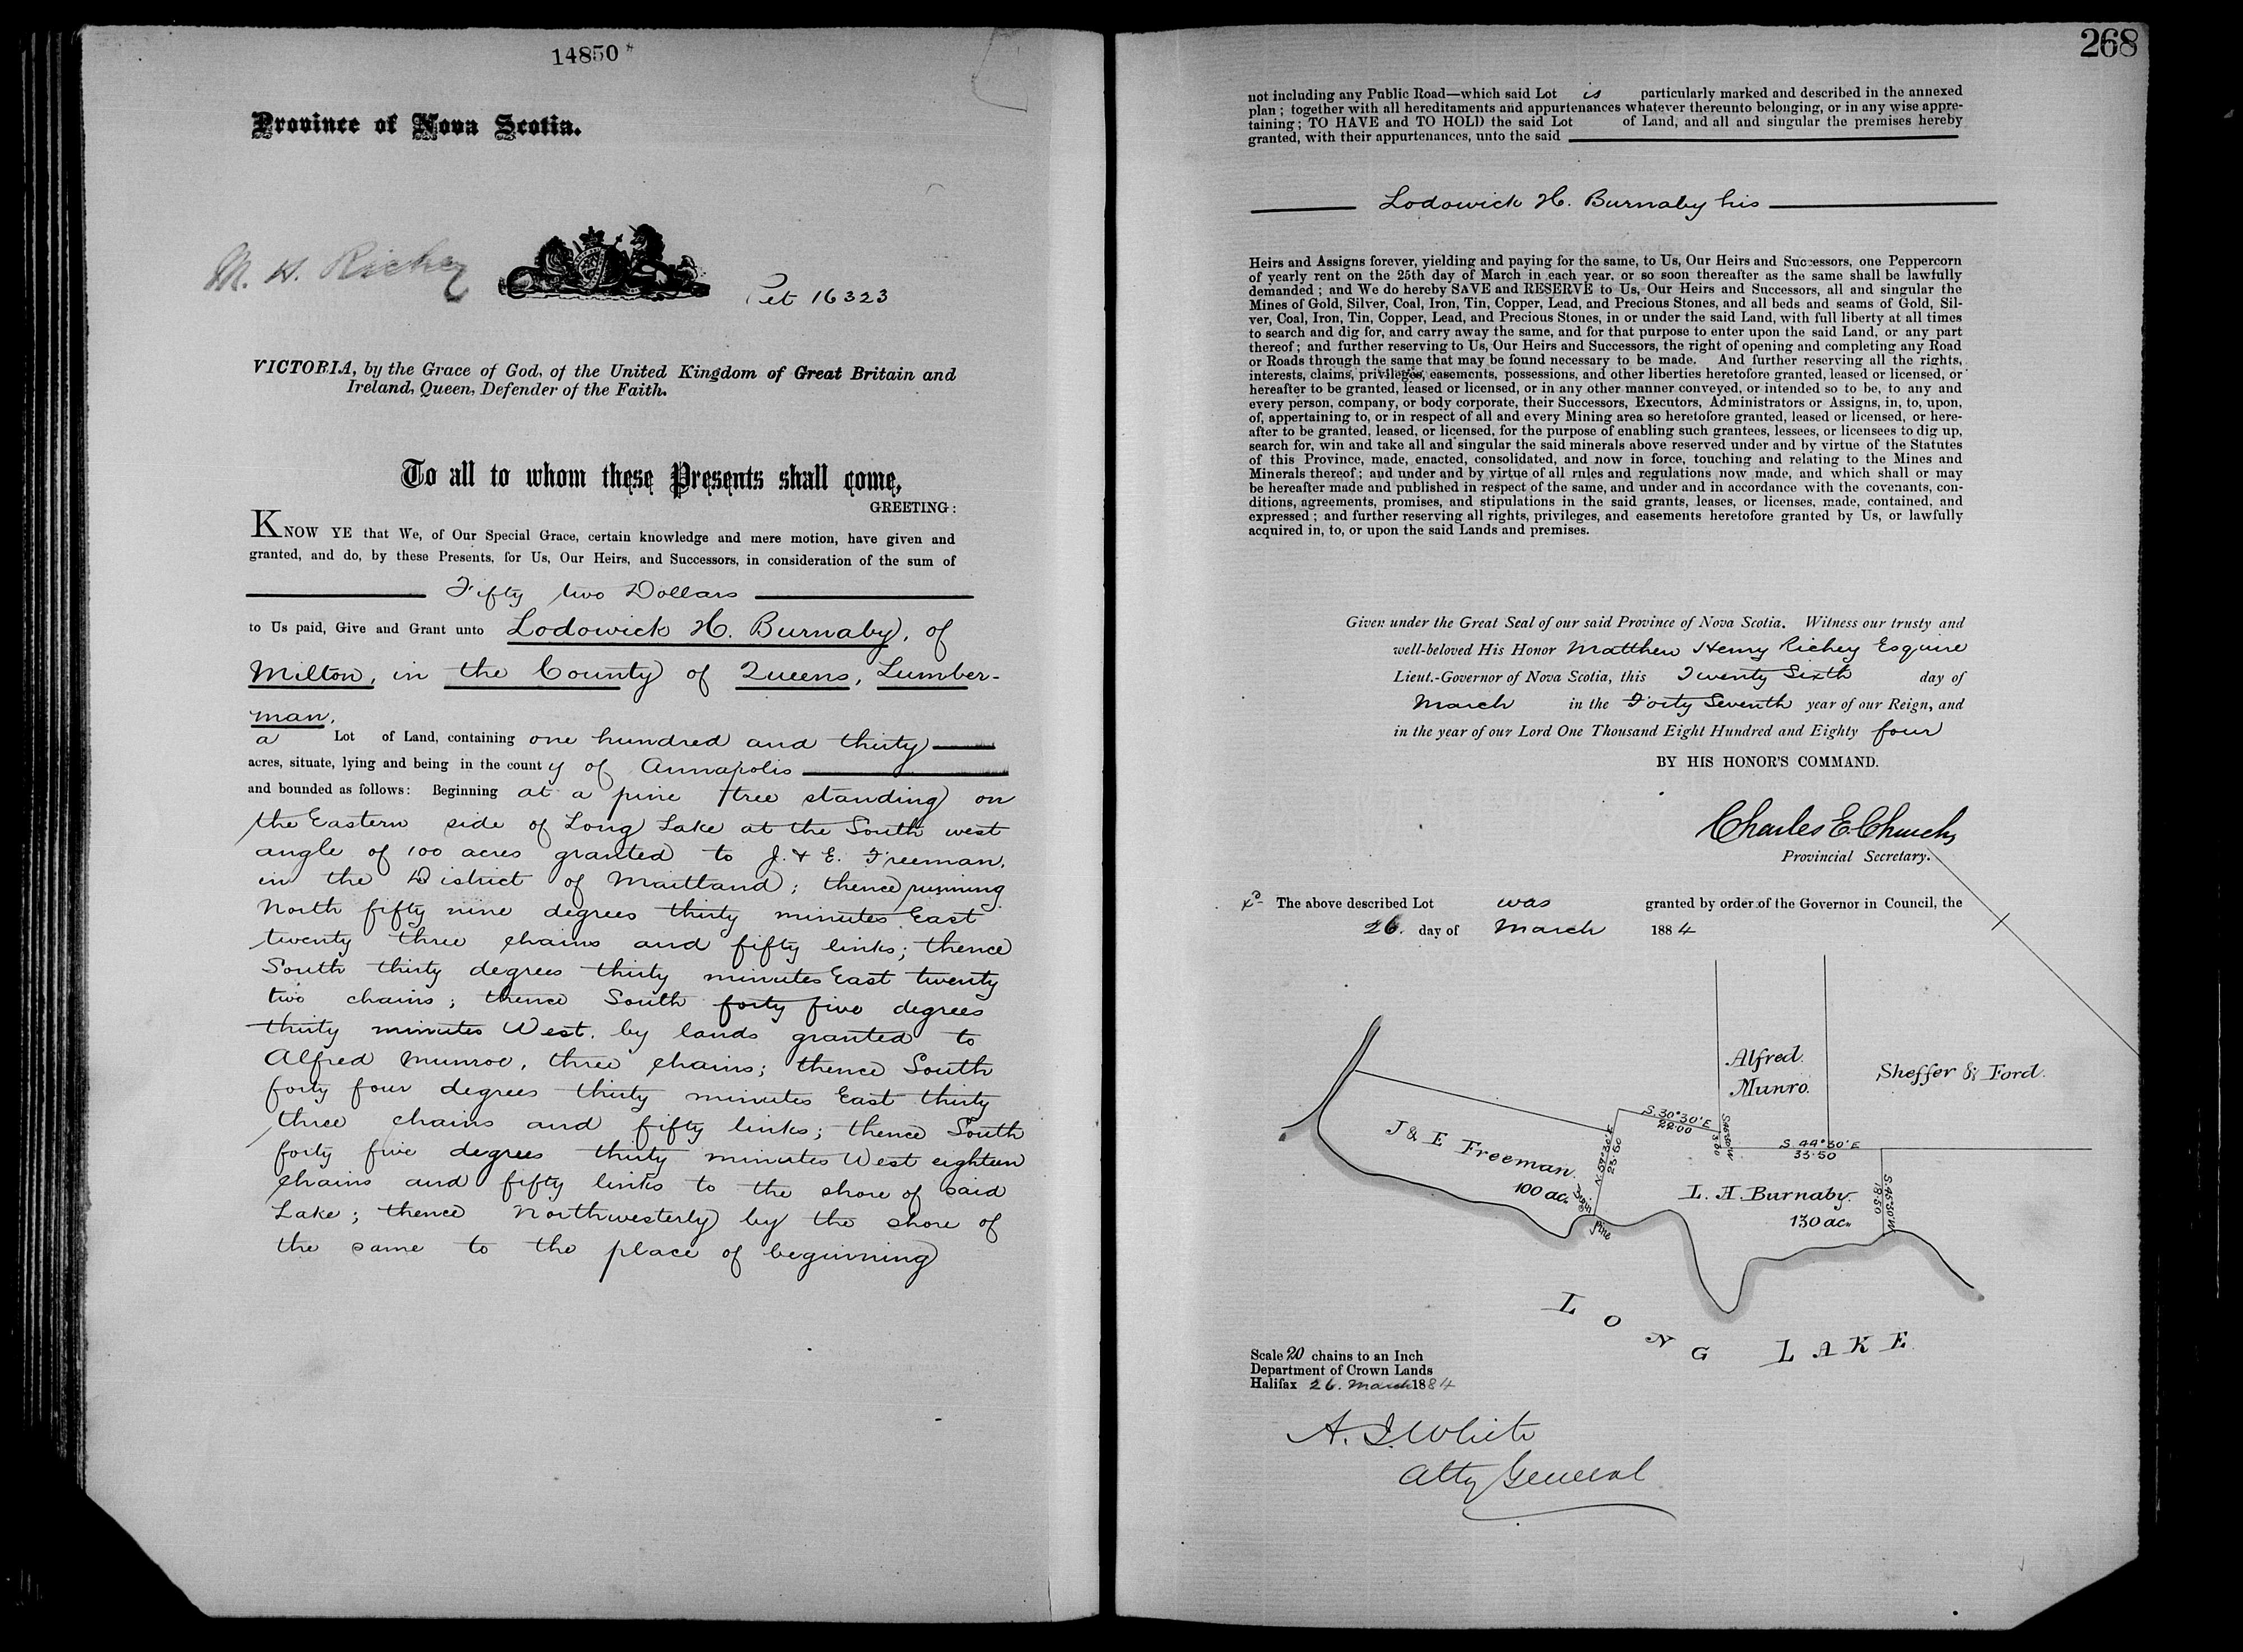 14850
Province of Nova Scotia.
M. H. Richey
Pet 16323
VICTORIA, by the Grace of God, of the United Kingdom of Great Britain and
Ireland, Queen, Defender of the Faith.
To all to whom these Presents shall come,
GREETING:
KNOW YE that We, of Our Special Grace, certain knowledge and mere motion, have given and
granted, and do, by these Presents, for Us, Our Heirs, and Successors, in consideration of the sum of
Fifty two Dollars
to Us paid, Give and Grant unto Lodowick H. Burnaby, of
Milton, in the County of Queens, Lumber-
man.
a Lot of Land, containing one hundred and thirty
acres, situate, lying and being in the county of Annapolis
and bounded as follows: Beginning at a pine tree standing on
the Eastern side of Long Lake at the South west
angle of 100 acres granted to J. & E. Freeman,
in the District of Maitland; thence running
North fifty nine degrees thirty minutes East
twenty three chains and fifty links; thence
South thirty degrees thirty minutes East twenty
two chains; thence South forty five degrees
thirty minutes West. by lands granted to
Alfred Munroe, three chains; thence South
forty four degrees thirty minutes East thirty
three chains and fifty links; thence South
forty five degrees thirty minutes West eighteen
chains and fifty links to the shore of said
Lake; thence Northwesterly by the shore of
the same to the place of beginning
268
not including any Public Road—which said Lot is particularly marked and described in the annexed
plan; together with all hereditaments and appurtenances whatever thereunto belonging, or in any wise appre-
taining; TO HAVE and TO HOLD the said Lot of Land, and all and singular the premises hereby
granted, with their appurtenances, unto the said
Lodowick H. Burnaby his
Heirs and Assigns forever, yielding and paying for the same, to Us, Our Heirs and Successors, one Peppercorn
of yearly rent on the 25th day of March in each year, or so soon thereafter as the same shall be lawfully
demanded; and We do hereby SAVE and RESERVE to Us, Our Heirs and Successors, all and singular the
Mines of Gold, Silver, Coal, Iron, Tin, Copper, Lead, and Precious Stones, and all beds and seams of Gold, Sil-
ver, Coal, Iron, Tin, Copper, Lead, and Precious Stones, in or under the said Land, with full liberty at all times
to search and dig for, and carry away the same, and for that purpose to enter upon the said Land, or any part
thereof; and further reserving to Us, Our Heirs and Successors, the right of opening and completing any Road
or Roads through the same that may be found necessary to be made. And further reserving all the rights,
interests, claims, privileges, easements, possessions, and other liberties heretofore granted, leased or licensed, or
hereafter to be granted, leased or licensed, or in any other manner conveyed, or intended so to be, to any and
every person, company, or body corporate, their Successors, Executors, Administrators or Assigns, in, to, upon,
of, appertaining to, or in respect of all and every Mining area so heretofore granted, leased or licensed, or here-
after to be granted, leased, or licensed, for the purpose of enabling such grantees, lessees, or licensees to dig up,
search for, win and take all and singular the said minerals above reserved under and by virtue of the Statutes
of this Province, made, enacted, consolidated, and now in force, touching and relating to the Mines and
Minerals thereof; and under and by virtue of all rules and regulations now made, and which shall or may
be hereafter made and published in respect of the same, and under and in accordance with the covenants, con-
ditions, agreements, promises, and stipulations in the said grants, leases, or licenses, made, contained, and
expressed; and further reserving all rights, privileges, and easements heretofore granted by Us, or lawfully
acquired in, to, or upon the said Lands and premises.
Given under the Great Seal of our said Province of Nova Scotia. Witness our trusty and
well-beloved His Honor Matthew Henry Richey Esquire
Lieut.-Governor of Nova Scotia, this Twenty Sixth day of
March in the Forty Seventh year of our Reign, and
in the year of our Lord One Thousand Eight Hundred and Eighty four
BY HIS HONOR'S COMMAND.
Charles E. Church
Provincial Secretary.
The above described Lot was granted by order of the Governor in Council, the
26. day of March 1884
Alfred
Munro.
Sheffer & Ford.
J & E Freeman.
100 ac.
N. 59°30'E
23.50
S. 30°30'E
22.00
S.45°30'W
3.00
S. 44°30'E
33.50
S.45°30'W
18.50
L. H. Burnaby.
130 ac.
Pine
LONG LAKE
Scale 20 chains to an Inch
Department of Crown Lands
Halifax 26. March 1884
A. J. White
Atty General